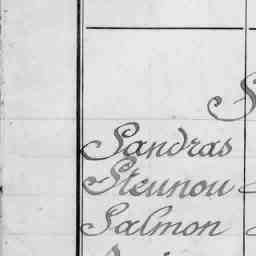 S
Sandras
Steunou
Salmon